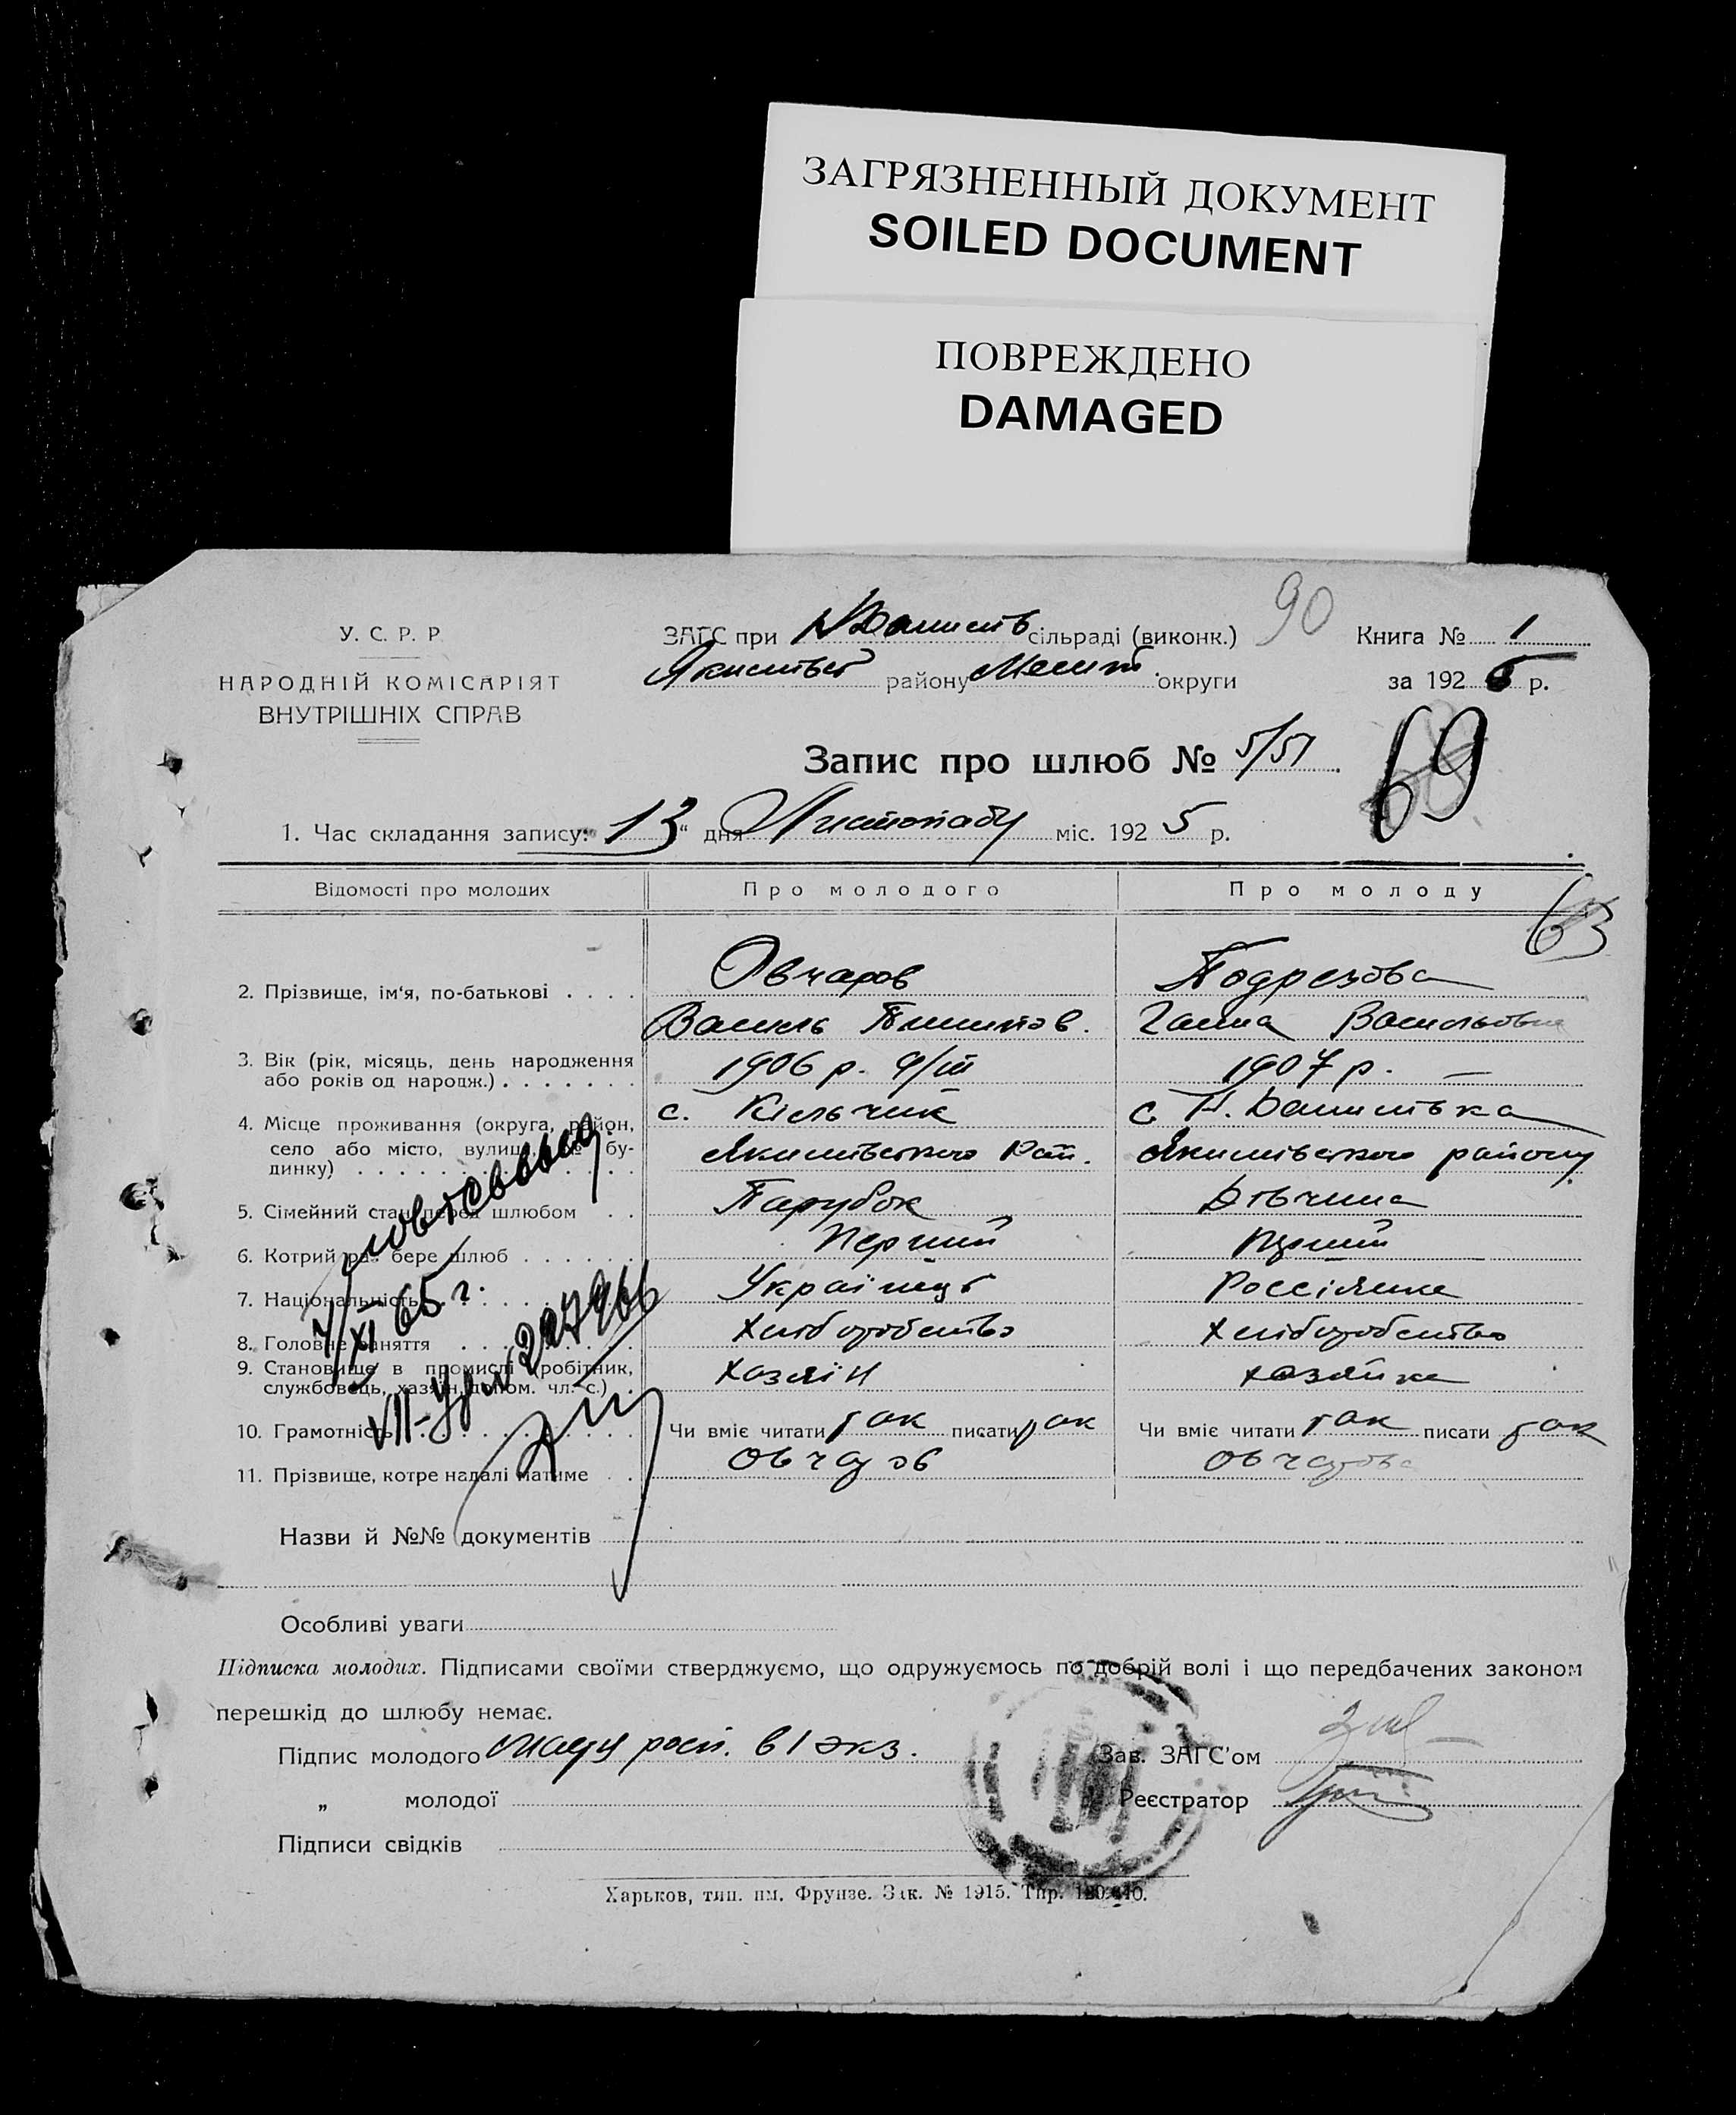 ЗАГРЯЗНЕННЫЙ ДОКУМЕНТ
SOILED DOCUMENT
ПОВРЕЖДЕНО
DAMAGED
90
У. С. Р. Р.
НАРОДНІЙ КОМІСАРІЯТ
ВНУТРІШНІХ СПРАВ
ЗАГС при сільраді (виконк.)
району Меліт. округи
Книга № 1
за 192 5 р.
Запис про шлюб № 5/51
69
1. Час складання запису: 13 " дня Листопаду міс. 192 5 р.
Відомості про молодих Про молодого Про молоду
63
2. Прізвище, ім'я, по-батькові . . . . Овчаров Подрезова
Василь Ганна Васильовна
3. Вік (рік, місяць, день народження
або років од народж.) . . . . . . . 1906 р. 9/III 1907 р. —
4. Місце проживання (округа, район, с. Кільчик с. Н. Данилівка
село або місто, вулиця, № бу-
динку) . . . . . . . . . . Якимівського Рай. Якимівського району
5. Сімейний стан перед шлюбом . . Парубок Дівчина
6. Котрий раз бере шлюб . . . . . . Перший Перший
7. Національність . . . . . . Українець Россіянка
8. Головне заняття . . . . . . Хліборобство Хліборобство
9. Становище в промислі (робітник,
службовець, хазяїн, допом. чл. с.) . Хазяїн хазяйка
10. Грамотність . . . . . . Чи вміє читати так писати так Чи вміє читати так писати так
11. Прізвище, котре надалі матиме . . Овчаров Овчарова
XI 65 г.
VII-
Назви й №№ документів
Особливі уваги
Підписка молодих. Підписами своїми стверджуємо, що одружуємось по добрій волі і що передбачених законом
перешкід до шлюбу немає.
Підпис молодого росп. в 1 экз.
Зав. ЗАГС'ом
„ молодої
Реєстратор
Підписи свідків
Харьков, тип. им. Фрунзе. Зак. № 1915. Тир.